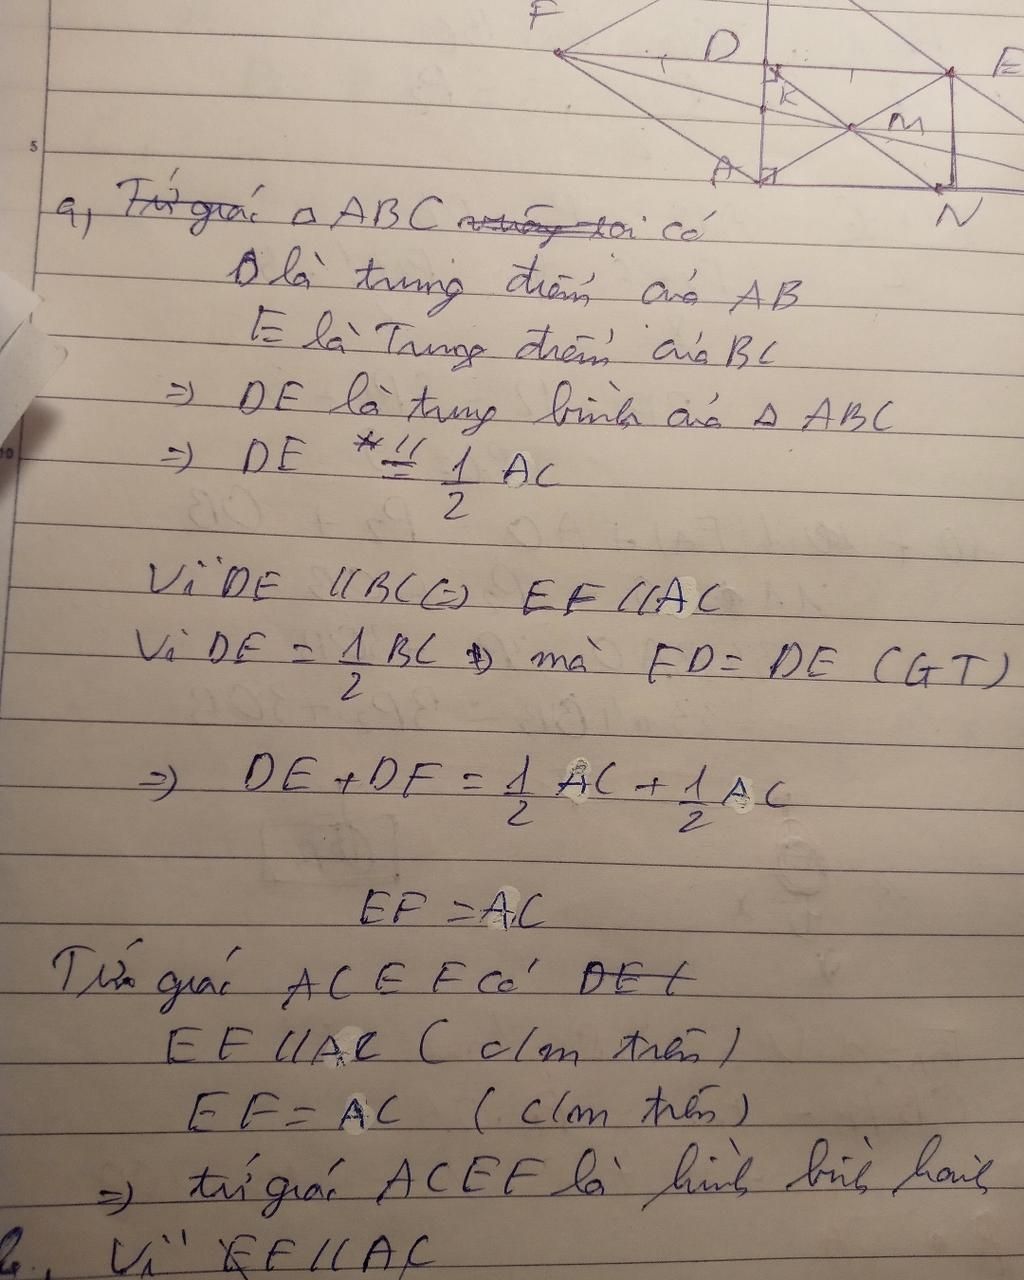 F
D
E
K
M
A
N
5
a, Tứ giác △ ABC có
D là trung điểm của AB
E là Trung điểm của BC
=> DE là trung bình của △ ABC
=> DE // = 1/2 AC
10
Vì DE // BC => EF // AC
Vì DE = 1/2 BC mà FD = DE (GT)
=> DE + DF = 1/2 AC + 1/2 AC
EF = AC
Tứ giác ACEF có DE
EF // AC (c/m trên)
EF = AC (c/m trên)
=> tứ giác ACEF là hình bình hành
b, Vì EF // AC